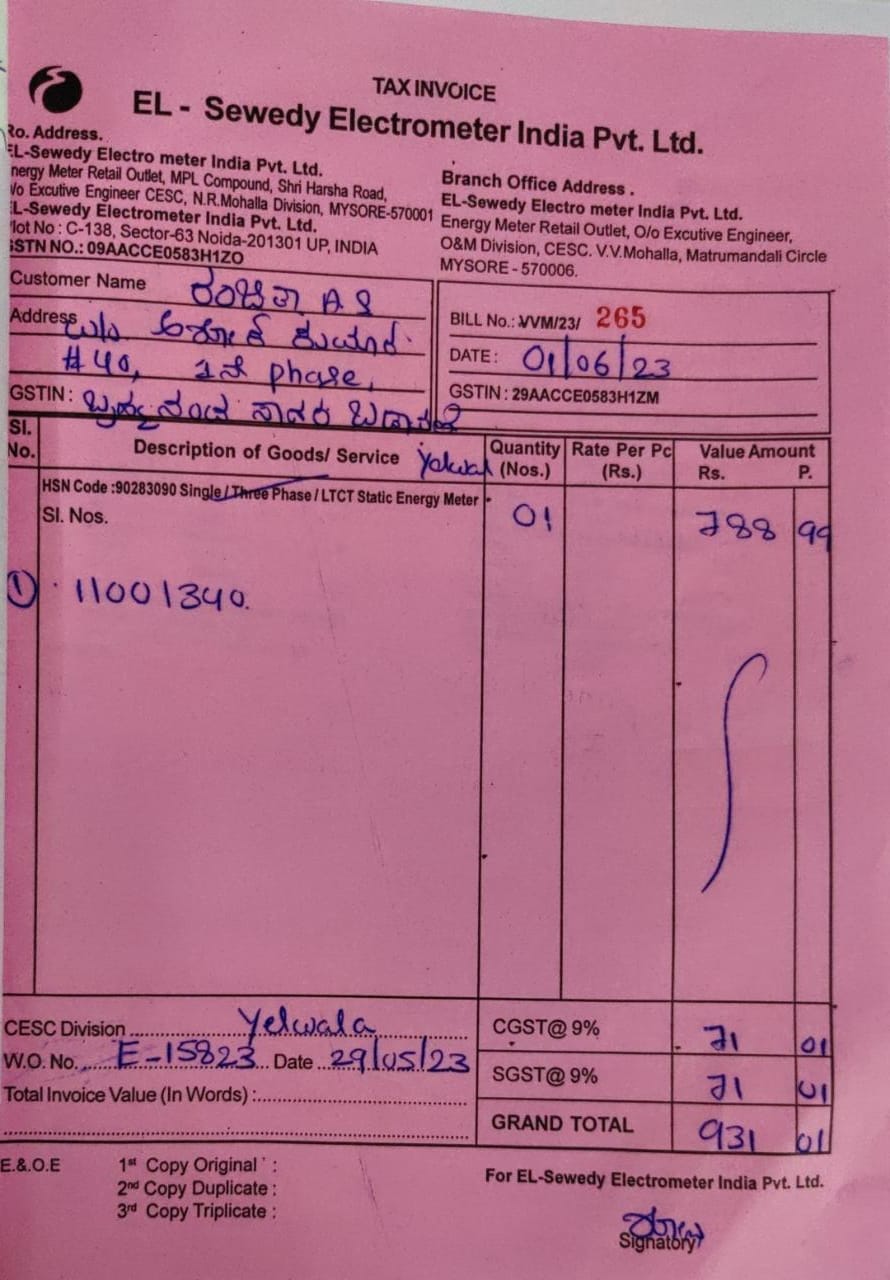 TAX INVOICE
EL - Sewedy Electrometer India Pvt. Ltd.
Ro. Address.
EL-Sewedy Electro meter India Pvt. Ltd.
nergy Meter Retail Outlet, MPL Compound, Shri Harsha Road,
/o Excutive Engineer CESC, N.R.Mohalla Division, MYSORE-570001
EL-Sewedy Electrometer India Pvt. Ltd.
Plot No : C-138, Sector-63 Noida-201301 UP, INDIA
GSTN NO.: 09AACCE0583H1ZO
Branch Office Address .
EL-Sewedy Electro meter India Pvt. Ltd.
Energy Meter Retail Outlet, O/o Excutive Engineer,
O&M Division, CESC. V.V.Mohalla, Matrumandali Circle
MYSORE - 570006.
Customer Name A S
Address
#40, 1ನೇ phase,
GSTIN :
Yelwal
BILL No.: VVM/23/ 265
DATE : 01/06/23
GSTIN : 29AACCE0583H1ZM
Sl. No. Description of Goods/ Service Quantity (Nos.) Rate Per Pc (Rs.) Value Amount Rs. P.
HSN Code :90283090 Single / Three Phase / LTCT Static Energy Meter
Sl. Nos. 01 788 99
① 11001340.
CESC Division Yelwala
W.O. No. E-15823 Date 29/05/23
Total Invoice Value (In Words) :
CGST@ 9% 71 01
SGST@ 9% 71 01
GRAND TOTAL 931 01
E.&.O.E
1st Copy Original :
2nd Copy Duplicate :
3rd Copy Triplicate :
For EL-Sewedy Electrometer India Pvt. Ltd.
Signatory